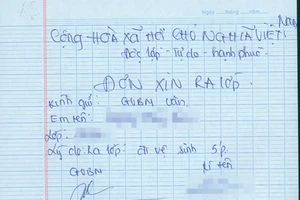 Ngày tháng năm
CỘNG HOÀ XÃ HỘI CHỦ NGHĨA VIỆT Nam
Độc lập - Tự do - hạnh phúc
ĐƠN XIN RA LỚP
Kính gửi: GVBM Văn
Em tên:
Lớp:
Lý do ra lớp: đi vệ sinh 5p
GVBM kí tên